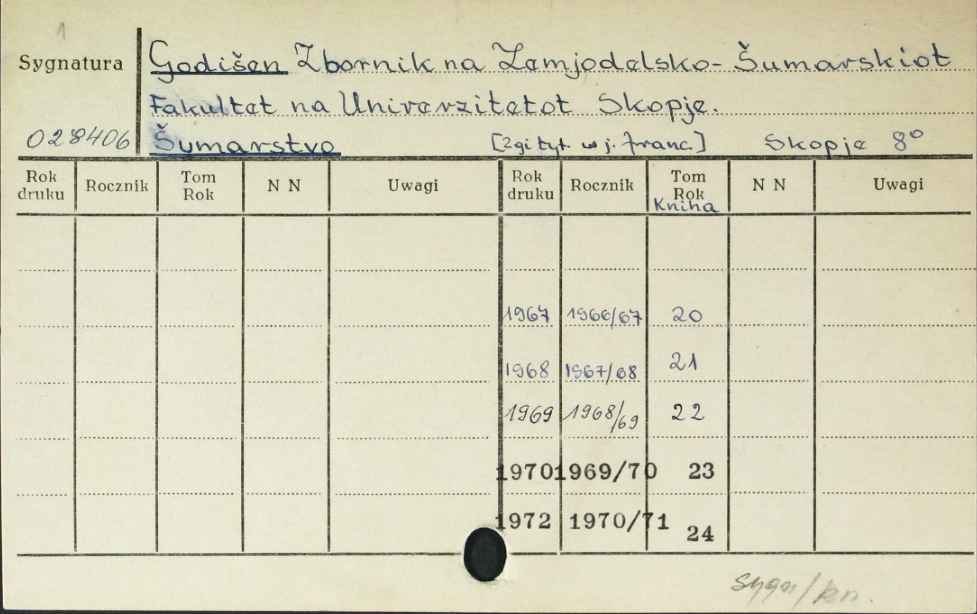 1
Sygnatura
Godišen Zbornik na Zemjodelsko-Šumarskiot
Fakultet na Univerzitetot Skopje.
028406 Šumarstvo [2gi tyt. w j. franc] Skopje 8°
Rok druku Rocznik Tom Rok N N Uwagi Rok druku Rocznik Tom Rok Kniha N N Uwagi
1967 1966/67 20
1968 1967/68 21
1969 1968/69 22
1970 1969/70 23
1972 1970/71 24
sygn/kn.